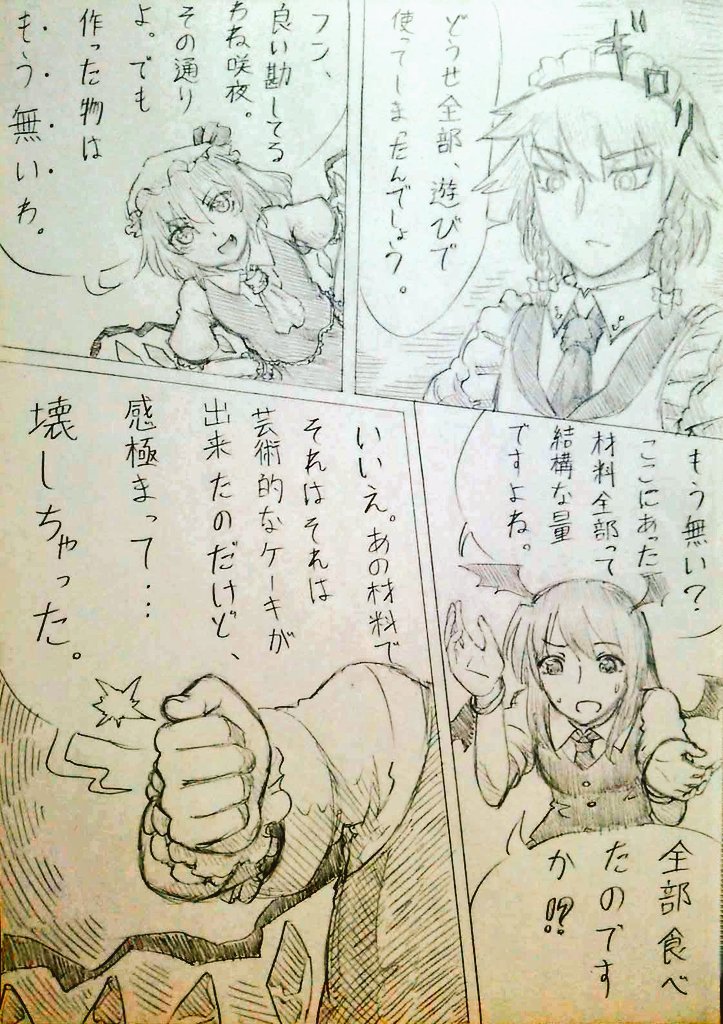 ギロリ
どうせ全部、遊びで
使ってしまったんでしょう。
フン、
良い勘してる
わね咲夜。
その通り
よ。でも
作った物は
もう無いわ。
もう無い?
ここにあった
材料全部って
結構な量
ですよね。
全部食べ
たのです
か!?
いいえ。あの材料で
それはそれは
芸術的なケーキが
出来たのだけど、
感極まって・・・
壊しちゃった。